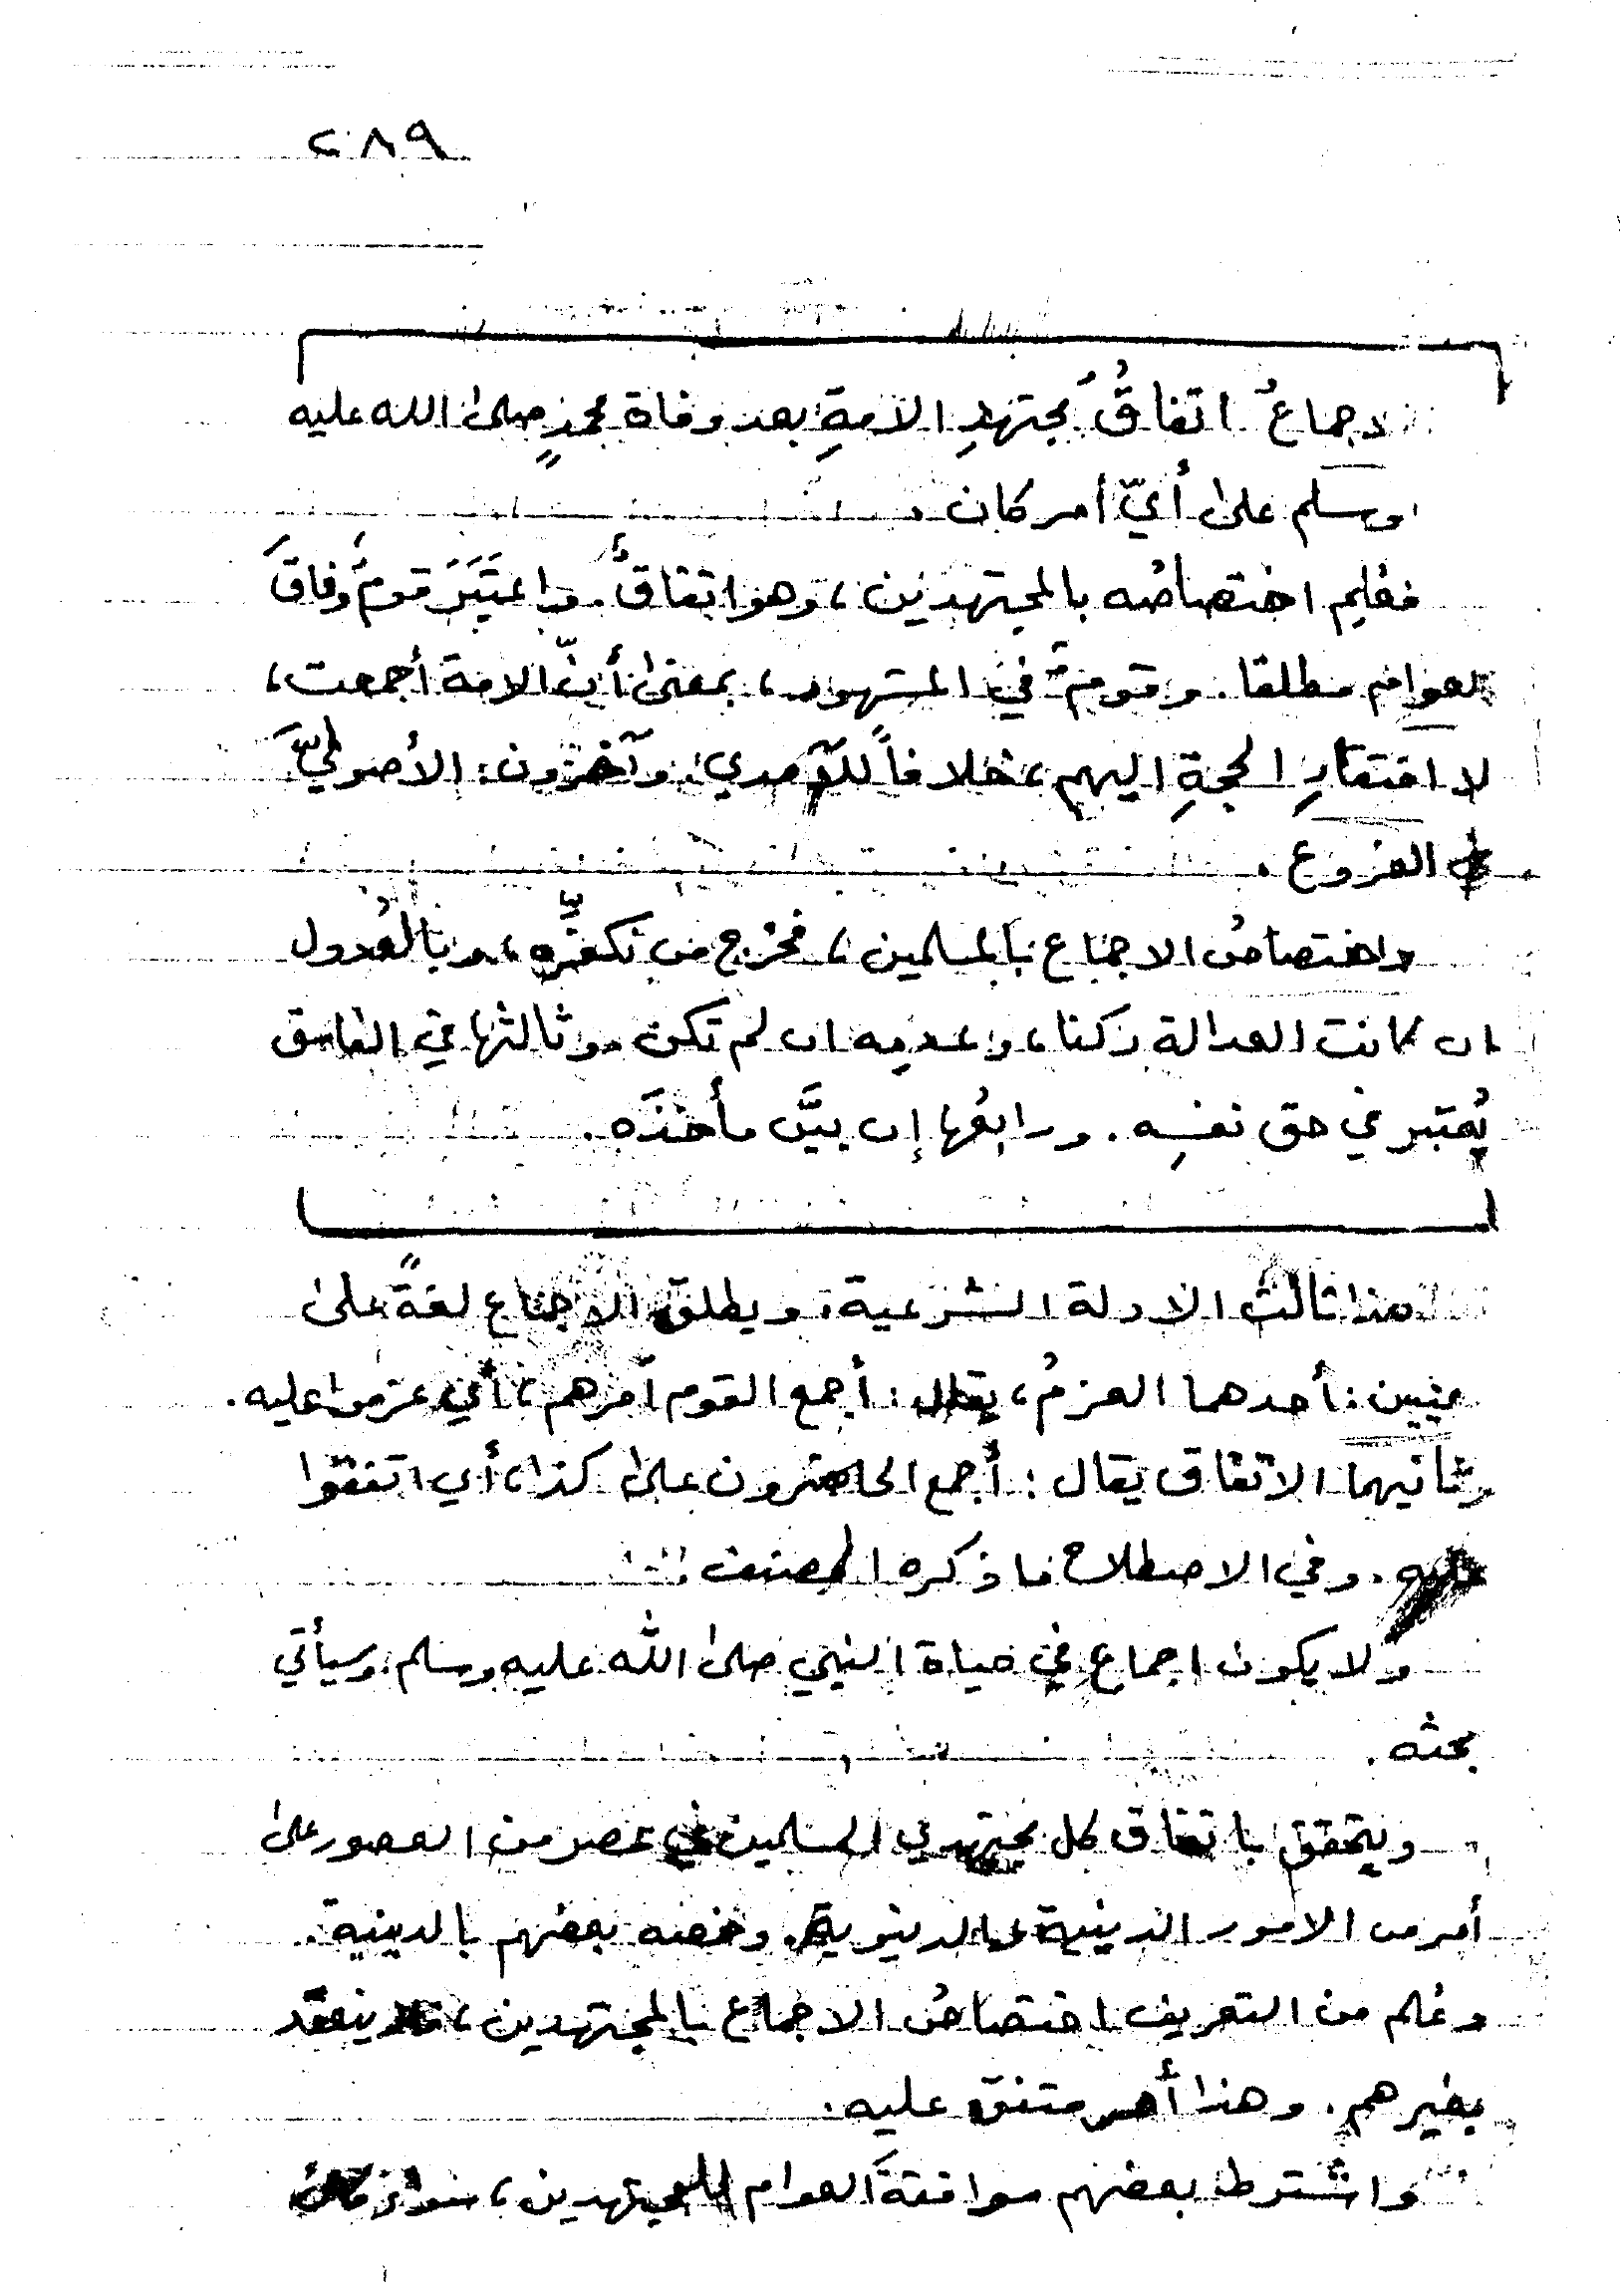 ٢٨٩
لاجماعُ اتفاقُ مُجتهدِ الامةِ بعد وفاة محمدٍ صلى الله عليه
وسلم على أيّ أمر كان .
فعُلِم اختصاصُه بالمجتهدين ، وهو اتفاقٌ . واعتَبَرَ قومٌ وِفاقَ
لعوام مطلقا . وقومٌ في المشهور ، بمعنى أنّ الامة أجمعت ،
لا افتقارِ الحجةِ اليهم ، خلافاً للآمدي . وآخرون : الأصوليَّ
في الفروع .
واختصاصُ الاجماع بالمسلمين ، فخرج من نكفّره ، وبالعُدول
ان كانت العدالة ركنا ، وعدمِه ان لم تكن . وثالثها في الفاسق
يُعتبر في حق نفسِه . ورابعُها إن بيَّن مأخذَه .
هذا ثالث الادلة الشرعية . ويطلق الاجماع لغةً على
عنيين : أحدهما العزمُ ، يقال : أجمع القوم أمرهم ، أي عزموا عليه .
وثانيهما الاتفاق يقال : أجمع الحاضرون على كذا ، أي اتفقوا
عليه . وفي الاصطلاح ما ذكره المصنف .
ولا يكون اجماع في حياة النبي صلى الله عليه وسلم . وسيأتي
بحثه .
ويتحقق باتفاق كل مجتهدي المسلمين في عصر من العصور على
أمر من الامور الدينية والدنيوية . وخصه بعضهم بالدينية .
وعُلم من التعريف اختصاصُ الاجماع بالمجتهدين ، فلا ينعقد
بغيرهم . وهذا أمر متفق عليه .
واشترط بعضهم موافقةَ العوام للمجتهدين ، سواء